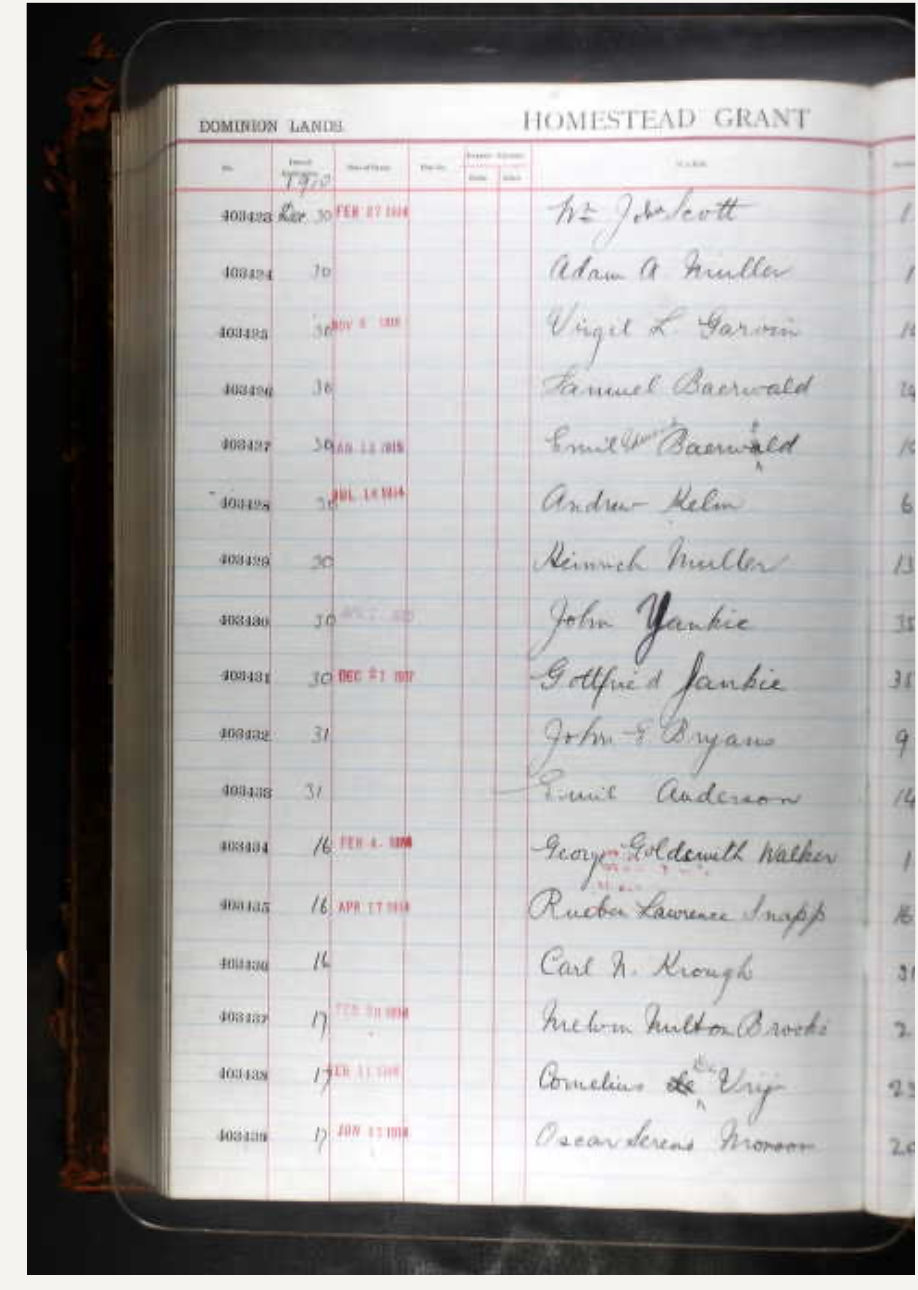 DOMINION LANDS. HOMESTEAD GRANT
No. NAME
1910
403423 Dec. 30 FEB 27 1914 Wm John Scott 1
403424 30 Adam A Muller 1
403425 30 NOV Virgil L. Garvin
403426 30 Samuel Baerwald
403427 30 JAN 13 1915 Emil Baerwald
403428 30 JUL 14 1914 Andrew Kelm 6
403429 30 Heinrich Muller 13
403430 30 John Yankie 35
403431 30 DEC 21 Gottfried Jankie 35
403432 31 John E Bryans 9
403433 31 Emil Anderson 14
403434 16 FEB 4 George Goldsmith Walker 1
403435 16 APR 17 1914 Rueben Lawrence Snapp 16
403436 16 Carl N. Krough 31
403437 17 FEB 1914 Melvin Milton Brooks 2
403438 17 Cornelius De Vrij
403439 17 JUN 1914 Oscar Serens Monson